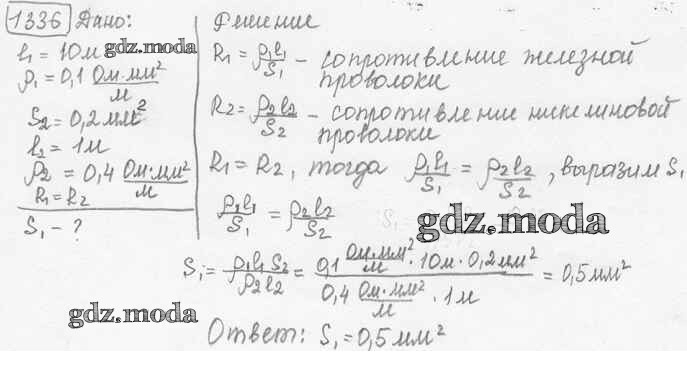 1336 Дано:
l₁ = 10м
ρ₁ = 0,1 Ом·мм²/м
S₂ = 0,2 мм²
l₂ = 1м
ρ₂ = 0,4 Ом·мм²/м
R₁ = R₂
S₁ - ?
Решение
R₁ = ρ₁l₁/S₁ - сопротивление железной
проволоки
R₂ = ρ₂l₂/S₂ - сопротивление никелиновой
проволоки
R₁ = R₂, тогда ρ₁l₁/S₁ = ρ₂l₂/S₂, выразим S₁
ρ₁l₁/S₁ = ρ₂l₂/S₂
S₁ = ρ₁l₁S₂/ρ₂l₂ = 0,1 Ом·мм²/м · 10м · 0,2мм² / 0,4 Ом·мм²/м · 1м = 0,5мм²
Ответ: S₁ = 0,5мм²
gdz.moda
gdz.moda
gdz.moda